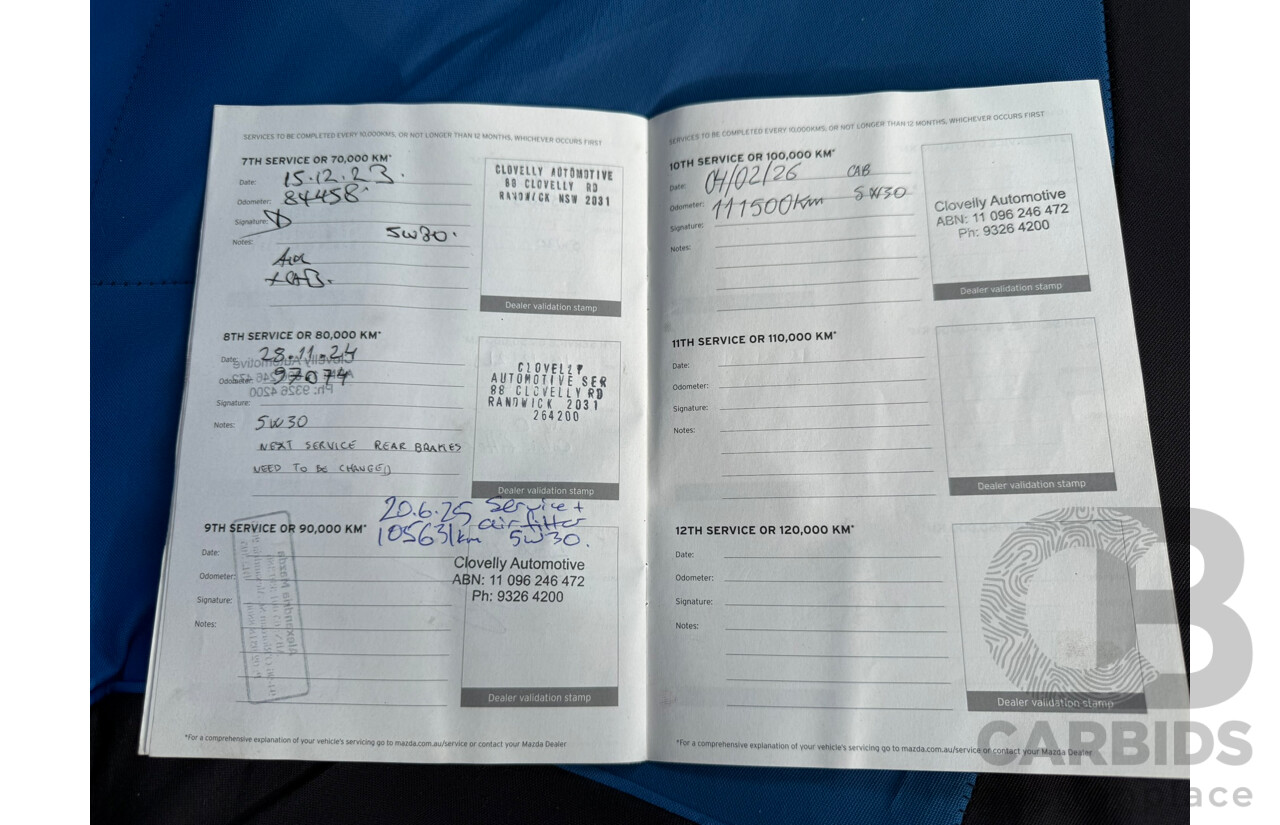 SERVICES TO BE COMPLETED EVERY 10,000KMS, OR NOT LONGER THAN 12 MONTHS, WHICHEVER OCCURS FIRST
7TH SERVICE OR 70,000 KM*
Date: 15.12.23.
Odometer: 84458
Signature:
Notes: 5W30.
+ CAB.
CLOVELLY AUTOMOTIVE
88 CLOVELLY RD
RANDWICK NSW 2031
Dealer validation stamp
8TH SERVICE OR 80,000 KM*
Date: 28.11.24
Odometer: 97074
Signature:
Notes: 5W30
NEXT SERVICE REAR BRAKES
NEED TO BE CHANGED
CLOVELLY
AUTOMOTIVE SER
88 CLOVELLY RD
RANDWICK 2031
264200
Dealer validation stamp
20.6.25 Service +
air filter
105631km 5W30.
9TH SERVICE OR 90,000 KM*
Date:
Odometer:
Signature:
Notes:
Clovelly Automotive
ABN: 11 096 246 472
Ph: 9326 4200
Dealer validation stamp
*For a comprehensive explanation of your vehicle's servicing go to mazda.com.au/service or contact your Mazda Dealer
SERVICES TO BE COMPLETED EVERY 10,000KMS, OR NOT LONGER THAN 12 MONTHS, WHICHEVER OCCURS FIRST
10TH SERVICE OR 100,000 KM*
Date: 04/02/26 CAB
Odometer: 111500Km 5W30
Signature:
Notes:
Clovelly Automotive
ABN: 11 096 246 472
Ph: 9326 4200
Dealer validation stamp
11TH SERVICE OR 110,000 KM*
Date:
Odometer:
Signature:
Notes:
Dealer validation stamp
12TH SERVICE OR 120,000 KM*
Date:
Odometer:
Signature:
Notes:
Dealer validation stamp
*For a comprehensive explanation of your vehicle's servicing go to mazda.com.au/service or contact your Mazda Dealer
CB
CARBIDS